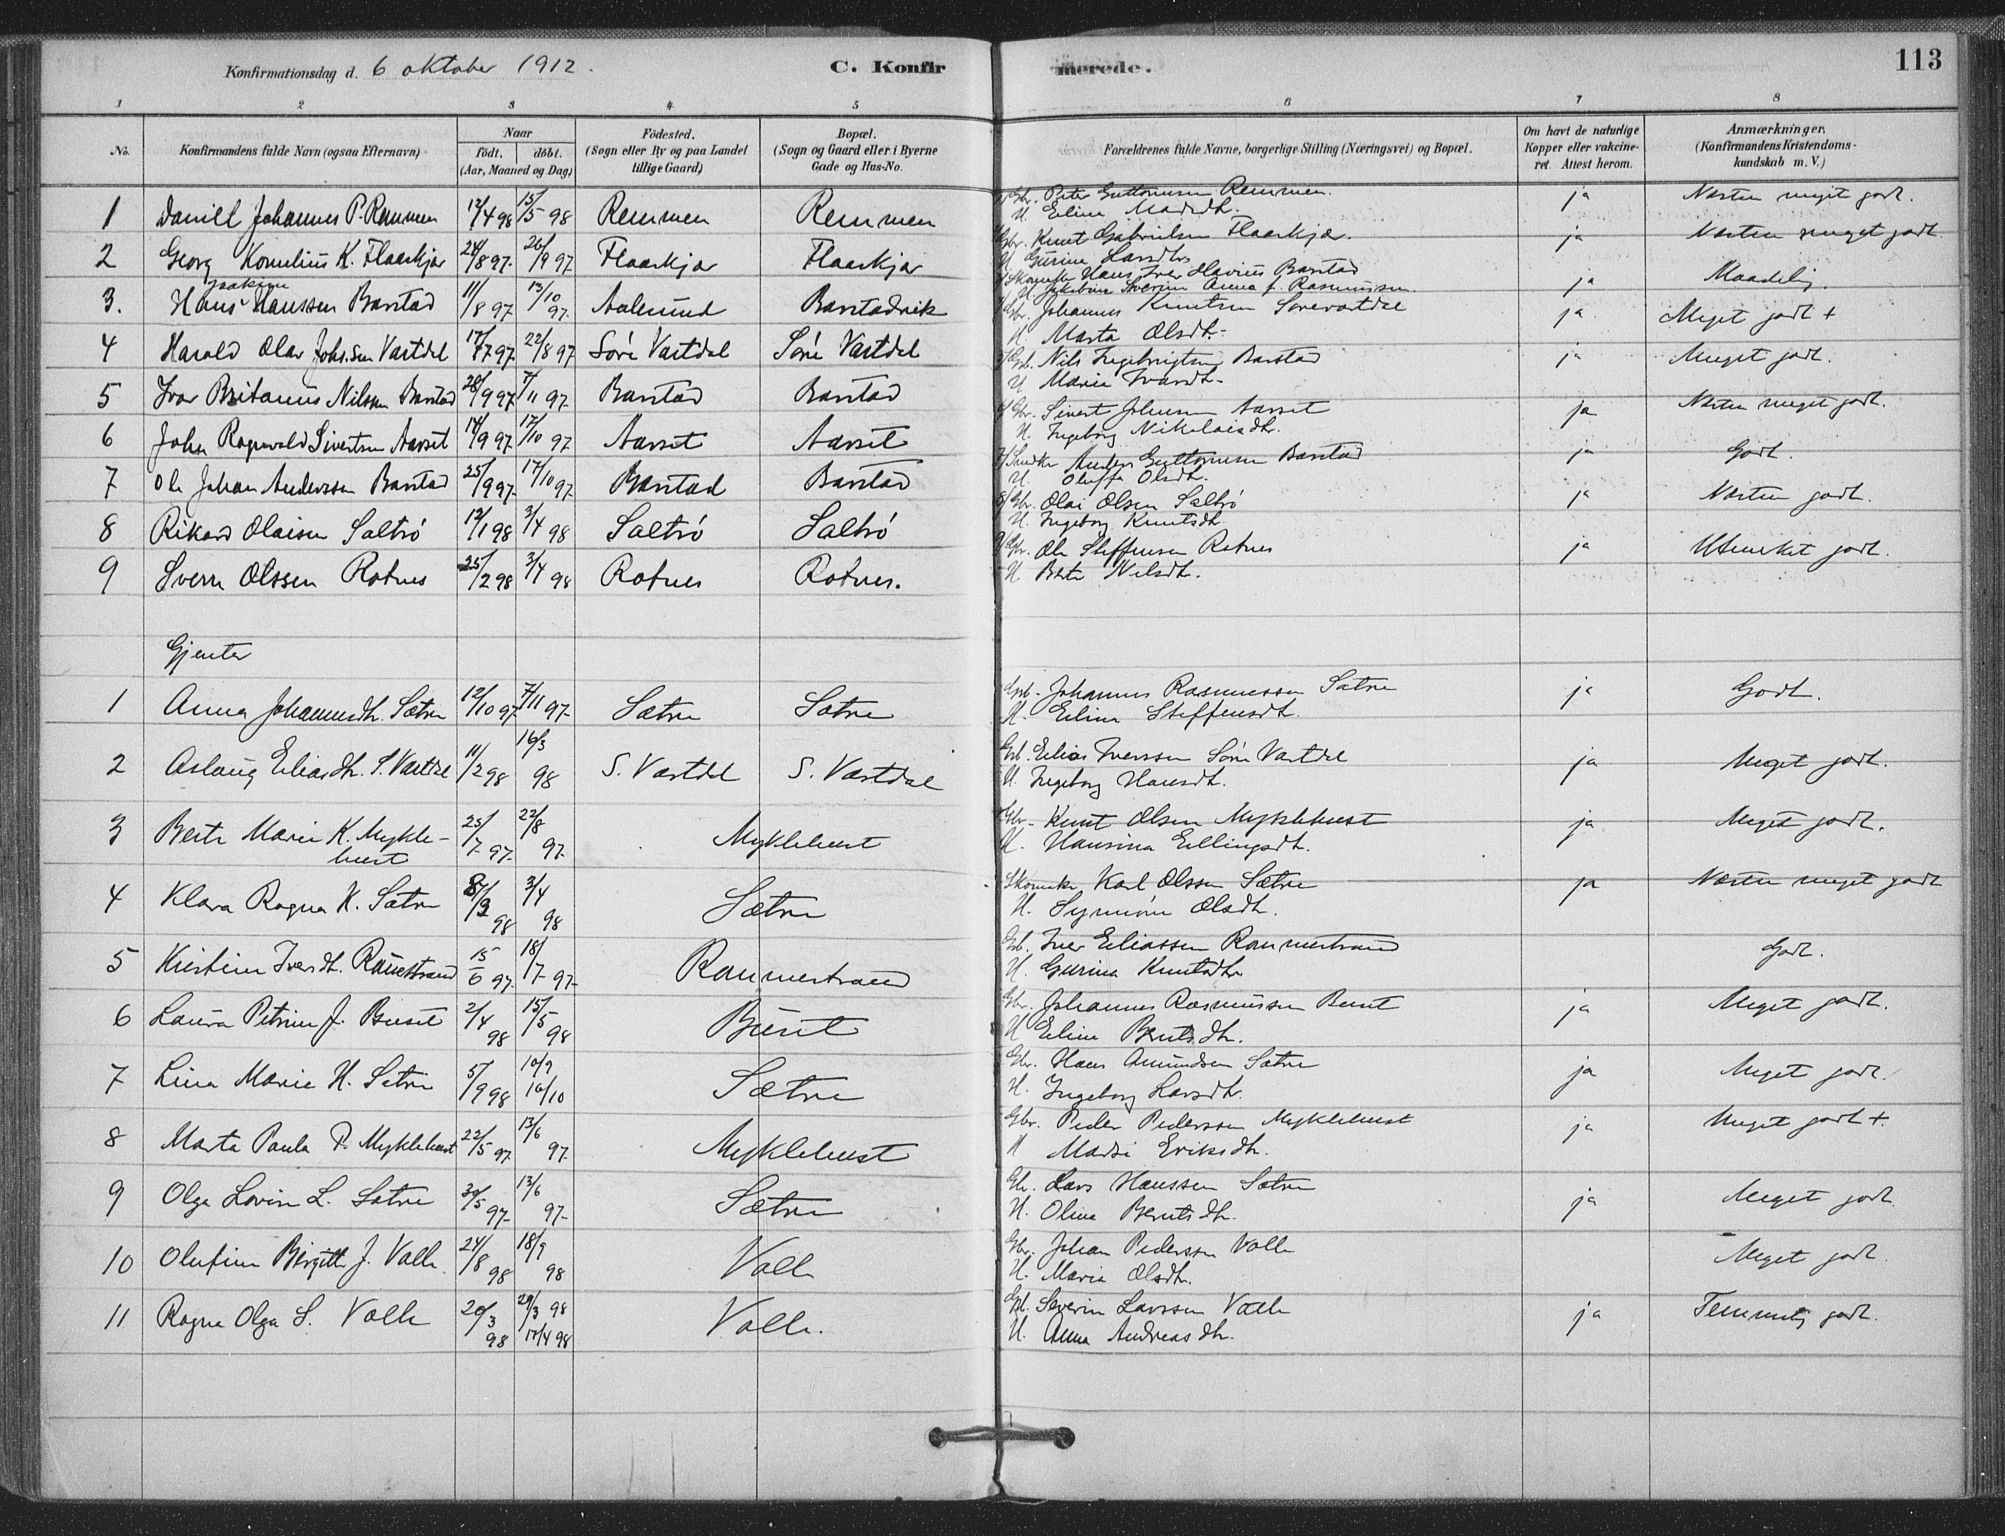 Konfirmationsdag d. 6 oktober 1912.
C. Konfirmerede.
113
1 2 3 4 5 6 7 8
No. Konfirmandens fulde Navn (ogsaa Efternavn) Naar født. døbt. (Aar, Maaned og Dag) Födested. (Sogn eller By og paa Landet tillige Gaard) Bopæl. (Sogn og Gaard eller i Byerne Gade og Hus-No. Forældrenes fulde Navne, borgerlige Stilling (Næringsvei) og Bopæl. Om havt de naturlige Kopper eller vakcineret. Attest herom. Anmærkninger. (Konfirmandens Kristendomskundskab m. V.)
1 Daniel Johannes P. Remmen 12/4 98 15/5 98 Remmen Remmen Gbr. Peter Guttormsen Remmen. H. Eline Madsdtr. ja Næsten meget godt.
2 Georg Kornelius K. Flaaskjær 24/8 97. 26/9 97 Flaaskjær Flaaskjær Gbr. Knut Gabrielsen Flaaskjær. H. Gurine Larsdtr. ja Næsten meget godt.
3. Hans Hanssen Barstad 11/8 97 13/10 97. Aalesund Barstadvik Hans Iver Barstad H. Jakobine Severine Anna f. Rasmussen. ja Maadelig.
4 Harald Olav Johs.sen Vartdal 17/7 97 22/8 97 Søre Vartdal Søre Vartdal Gbr. Johannes Knutsen Sørevartdal H. Marta Olsdt. ja Meget godt +
5 Ivar Britanus Nilsen Barstad 28/9 97 7/11 97. Barstad Barstad Gbr. Nils Ingebrigtsen Barstad H. Marie Ivarsdt. ja Meget godt.
6 Johs Ragnvald Sivertsen Aarset 14/9 97 17/10 97 Aarset Aarset Gbr. Sivert Johnsen Aarset H. Ingeborg Nikolaisdtr. ja Næsten meget godt.
7 Ole Johan Anderssen Barstad 25/9 97 17/10 97. Barstad Barstad Anders Guttormsen Barstad H. Oluffa Olsdt. ja Godt.
8 Rikard Olaisen Saltrø 12/1 98 3/4 98 Saltrø Saltrø Gbr. Olai Olsen Saltrø H. Ingeborg Knutsdtr. ja Næsten godt.
9 Sverre Olssen Rotnes 25/2 98 3/4 98 Rotnes Rotnes. Gbr. Ole Steffensen Rotnes H. Berte Nilsdtr. ja Utmerket godt.
Gjenter
1 Anna Johannesdtr. Sætre 12/10 97 7/11 97. Sætre Sætre Gbr. Johannes Rasmussen Sætre H. Eline Steffensdt. ja Godt.
2 Aslaug Eliasdtr. S. Vartdal 11/2 98 16/3 98 S. Vartdal S. Vartdal Gbr. Elias Iverssen Søre Vartdal H. Ingeborg Hansdtr. ja Meget godt.
3 Berte Marie K. Myklebust 25/7 97. 22/8 97. Myklebust Gbr. Knut Olsen Myklebust H. Hansina Ellingsdtr. ja Meget godt.
4 Klara Ragna K. Sætre 98 3/4 98 Sætre Skomaker Karl Olssen Sætre H. Synnøve Olsdtr. ja Næsten meget godt
5 Kristine Iversdtr. Rammestrand 15/6 97. 18/7 97. Rammestrand Gbr. Iver Eliassen Rammestrand H. Gurina Knutsdtr. Godt.
6 Laura Petrine J. Buset 2/4 98 15/5 98 Buset Gbr. Johannes Rasmussen Buset H. Eline Berntsdtr. ja Meget godt.
7 Lina Marie H. Sætre 5/9 98 10/9 16/10 Sætre Gbr. Hans Amundsen Sætre H. Ingeborg Larsdtr. ja Meget godt.
8 Marta Paula P. Myklebust 22/5 97. 13/6 97. Myklebust Gbr. Peder Pederssen Myklebust H Eriksdtr. ja Meget godt +.
9 Olga Lovise L. Sætre 30/5 97. 13/6 97. Sætre Gbr. Lars Hanssen Sætre H. Oline Berntsdtr. ja Meget godt
10 Olufine Birgitte J. Valle. 24/8 98 18/9 98 Valle Gbr. Johan Pederssen Valle H. Marie Olsdtr. Meget godt.
11 Ragna Olga S. Valle 20/3 98 29/3 98 17/4 98 Valle. Gbr. Severin Larssen Valle H. Anna Andreasdtr. ja Temmelig godt.